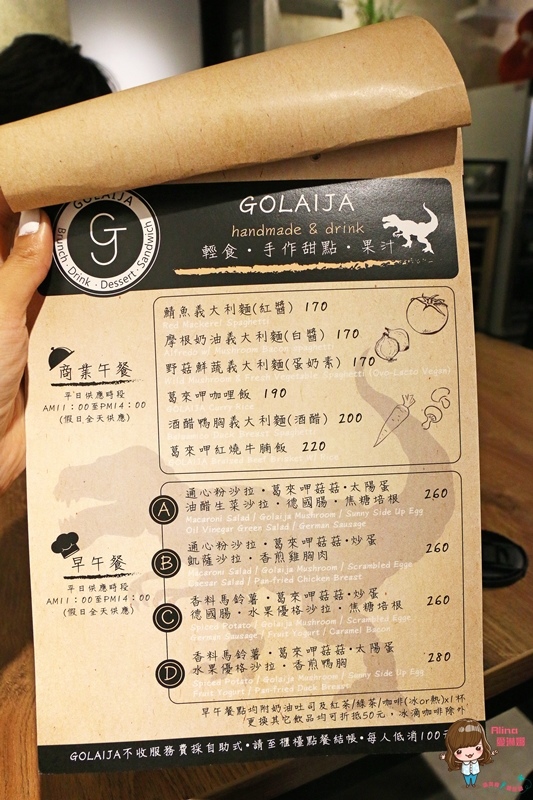 GOLAIJA
Brunch · Drink · Dessert · Sandwich
GOLAIJA
handmade & drink
輕食・手作甜點・果汁
商業午餐
平日供應時段
AM11：00至PM14：00
(假日全天供應)
鯖魚義大利麵(紅醬) 170
Red Mackerel Spaghetti
摩根奶油義大利麵(白醬) 170
野菇鮮蔬義大利麵(蛋奶素) 170
葛來呷咖哩飯 190
酒醋鴨胸義大利麵(酒醋) 200
葛來呷紅燒牛腩飯 220
早午餐
平日供應時段
AM11：00至PM14：00
(假日全天供應)
A
通心粉沙拉・葛來呷菇菇・太陽蛋
油醋生菜沙拉・德國腸・焦糖培根 260
Macaroni Salad / Golaija Mushroom / Sunny Side Up Egg
Oil Vinegar Green Salad / German Sausage
B
通心粉沙拉・葛來呷菇菇・炒蛋
凱薩沙拉・香煎雞胸肉 260
Macaroni Salad / Golaija Mushroom / Scrambled Eggs
Caesar Salad / Pan-fried Chicken Breast
C
香料馬鈴薯・葛來呷菇菇・炒蛋
德國腸・水果優格沙拉・焦糖培根 260
Spiced Potato / Golaija Mushroom / Scrambled Eggs
German Sausage / Fruit Yogurt / Caramel Bacon
D
香料馬鈴薯・葛來呷菇菇・太陽蛋
水果優格沙拉・香煎鴨胸 280
Spiced Potato / Golaija Mushroom / Sunny Side Up Egg
Fruit Yogurt / Pan-fried Duck Breast
早午餐點均附奶油吐司及紅茶/綠茶/咖啡(冰or熱)x1杯
更換其它飲品均可折抵50元，冰滴咖啡除外
GOLAIJA不收服務費採自助式・請至櫃檯點餐結帳・每人低消100元
Alina
愛琳娜